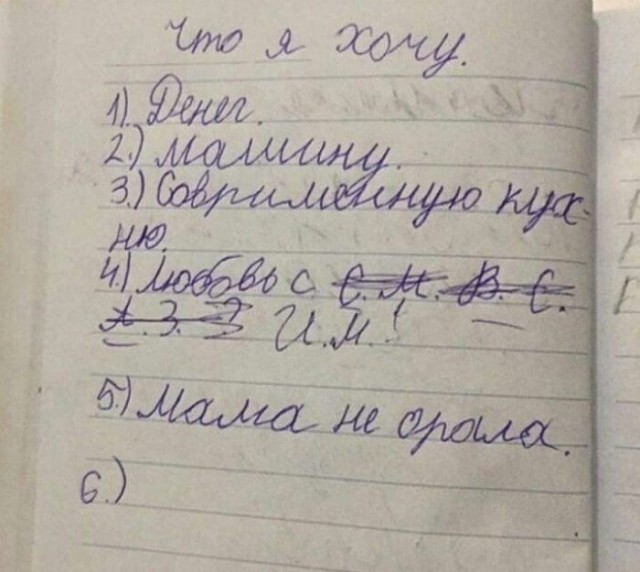 Что я хочу.
1). Денег.
2.) машину.
3.) Совримённую кух-
ню.
4.) любовь с С. М. В. С.
А. З. И. М.!
5.) мама не орала.
6.)